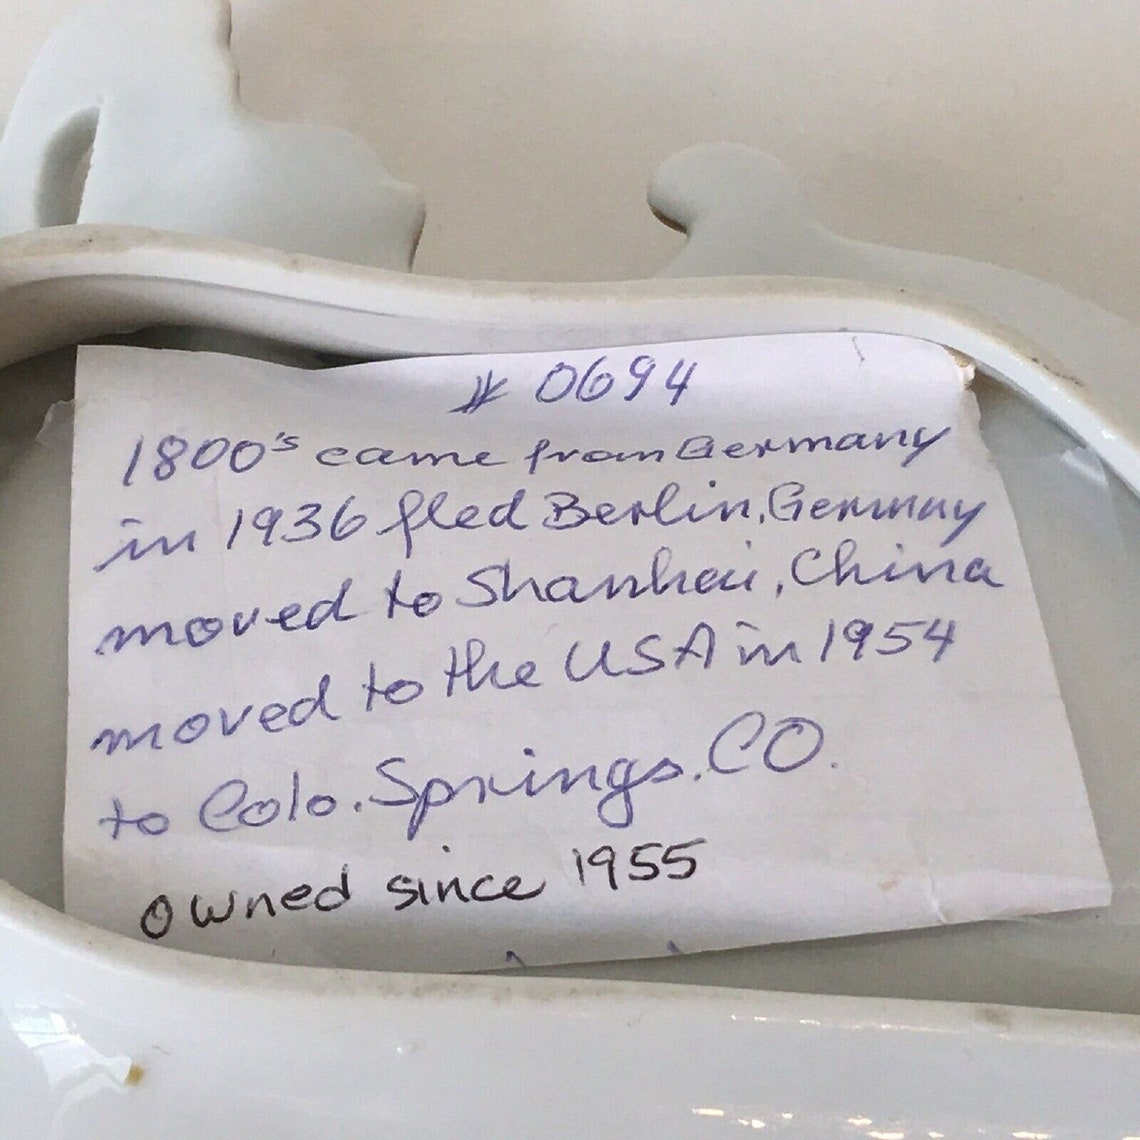 # 0694
1800's came from Germany
in 1936 fled Berlin, Germany
moved to Shanhai, China
moved to the USA in 1954
to Colo. Springs. CO.
owned since 1955